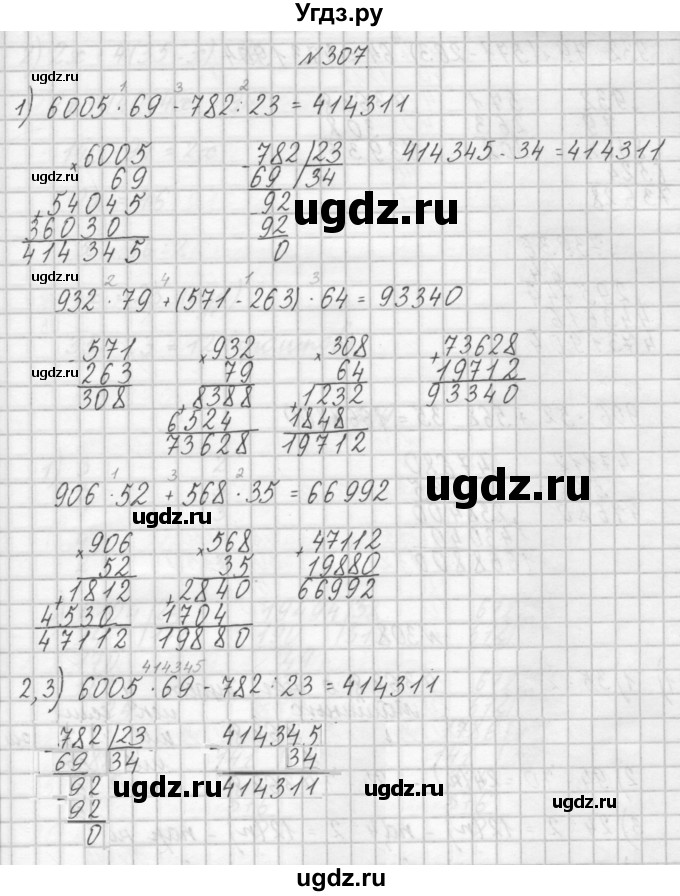 Угдз.ру
№307
ugdz.ru
1) 6005 · 69 - 782 : 23 = 414311
1 3 2
× 6005 - 782 | 23 414345 - 34 = 414311
69 69 34
ugdz.ru
+ 54045 - 92
36030 92
414345 0
ugdz.ru
ugdz.ru
2 4 1 3
932 · 79 + (571 - 263) · 64 = 93340
- 571 × 932 × 308 + 73628
263 79 64 19712
308 + 8388 + 1232 93340
ugdz.ru
6524 1848
73628 19712
1 3 2
906 · 52 + 568 · 35 = 66992
ugdz.ru
ugdz.ru
× 906 × 568 + 47112
52 35 19880
+ 1812 + 2840 66992
4530 1704
47112 19880
414345
2,3) 6005 · 69 - 782 : 23 = 414311
- 782 | 23 - 414345
69 34 34
- 92 414311
92
0
ugdz.ru
ugdz.ru
ugdz.ru
Угдз.ру